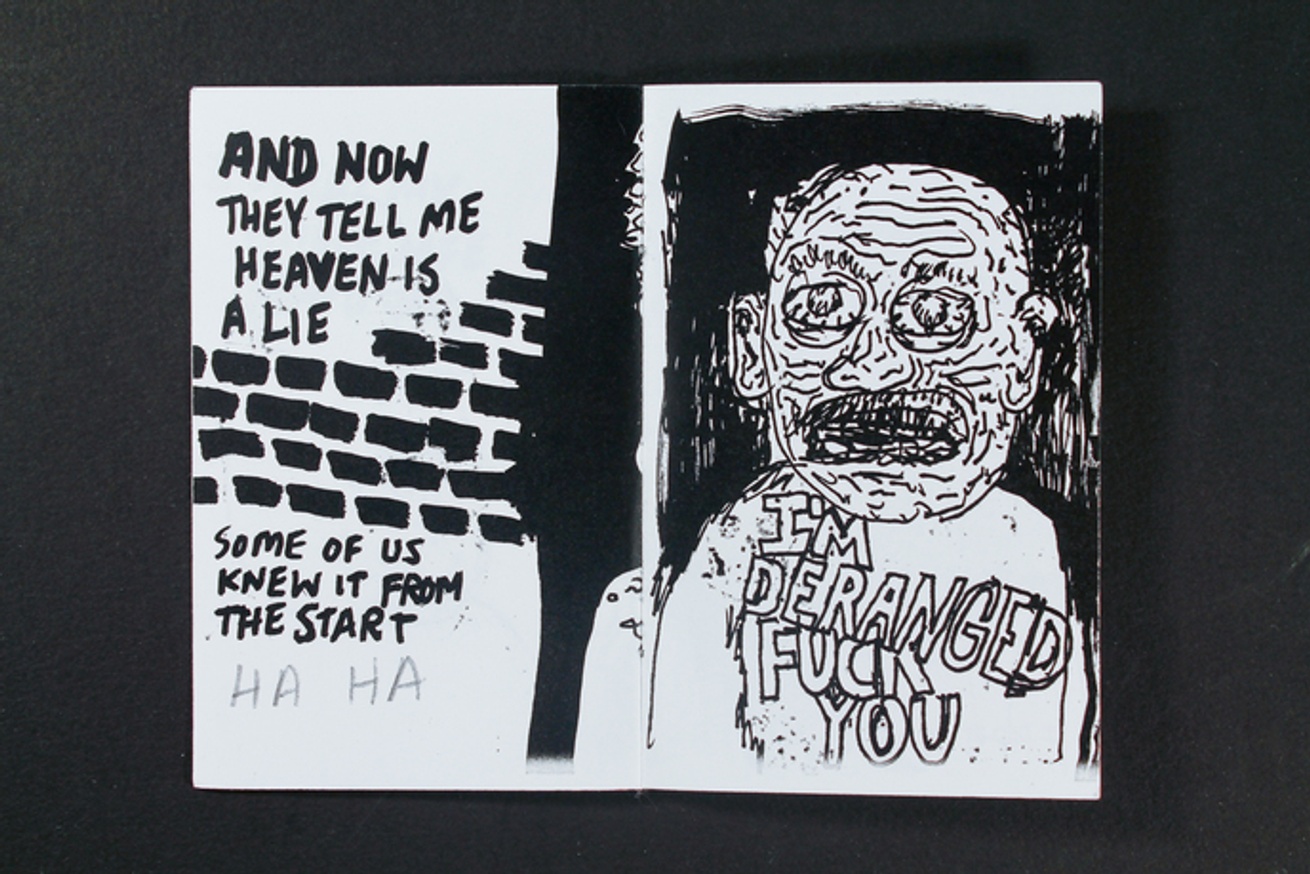 AND NOW
THEY TELL ME
HEAVEN IS
A LIE
SOME OF US
KNEW IT FROM
THE START
HA HA
I'M
DERANGED
FUCK
YOU